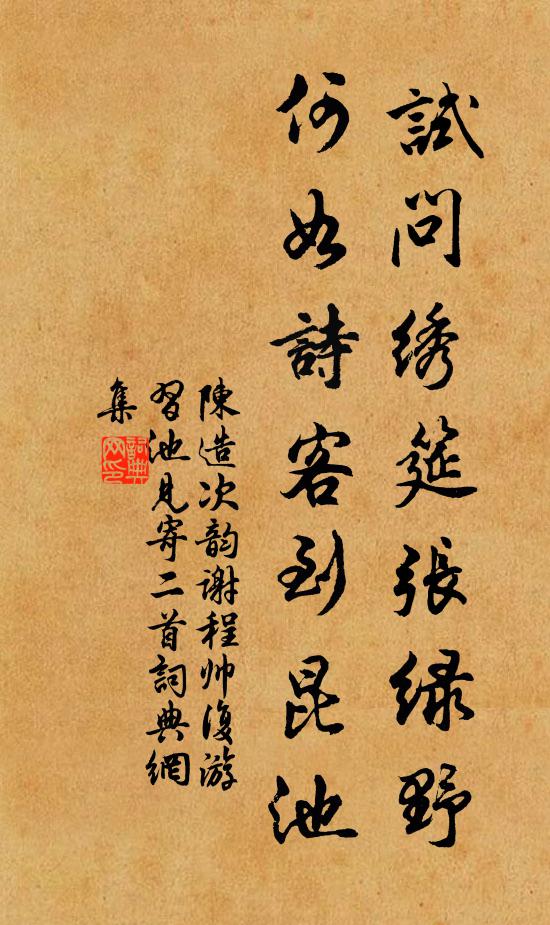 試問綉筵張綠野
何如詩客到昆池
陳造次韵謝程帅復游
習池見寄二首詞典網
集
詞典网印